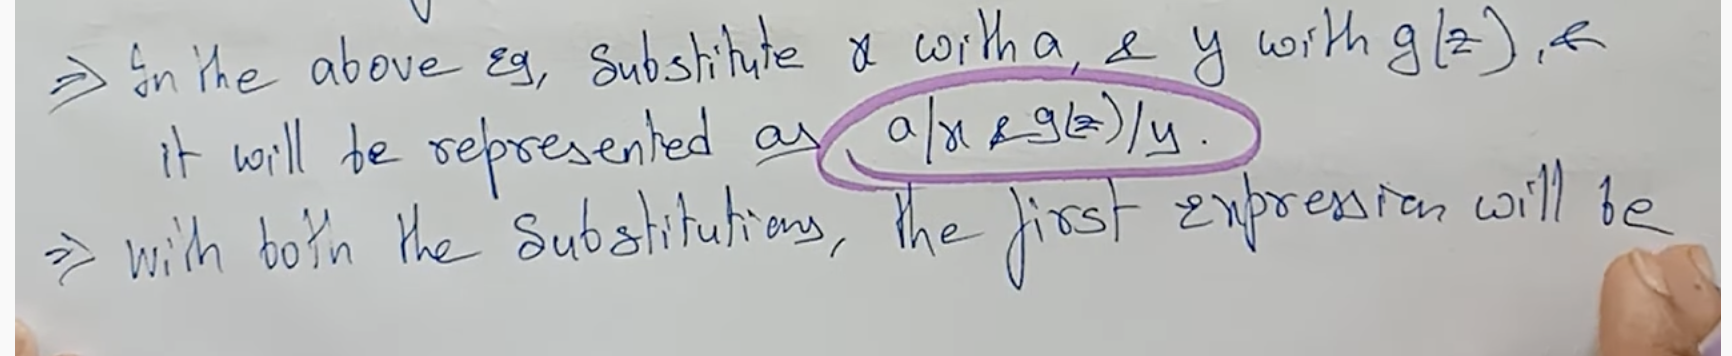 ⇒ In the above Eg, Substitute x with a, & y with g(z), &
it will be represented as a/x & g(z)/y.
⇒ with both the Substitutions, the first Expression will be